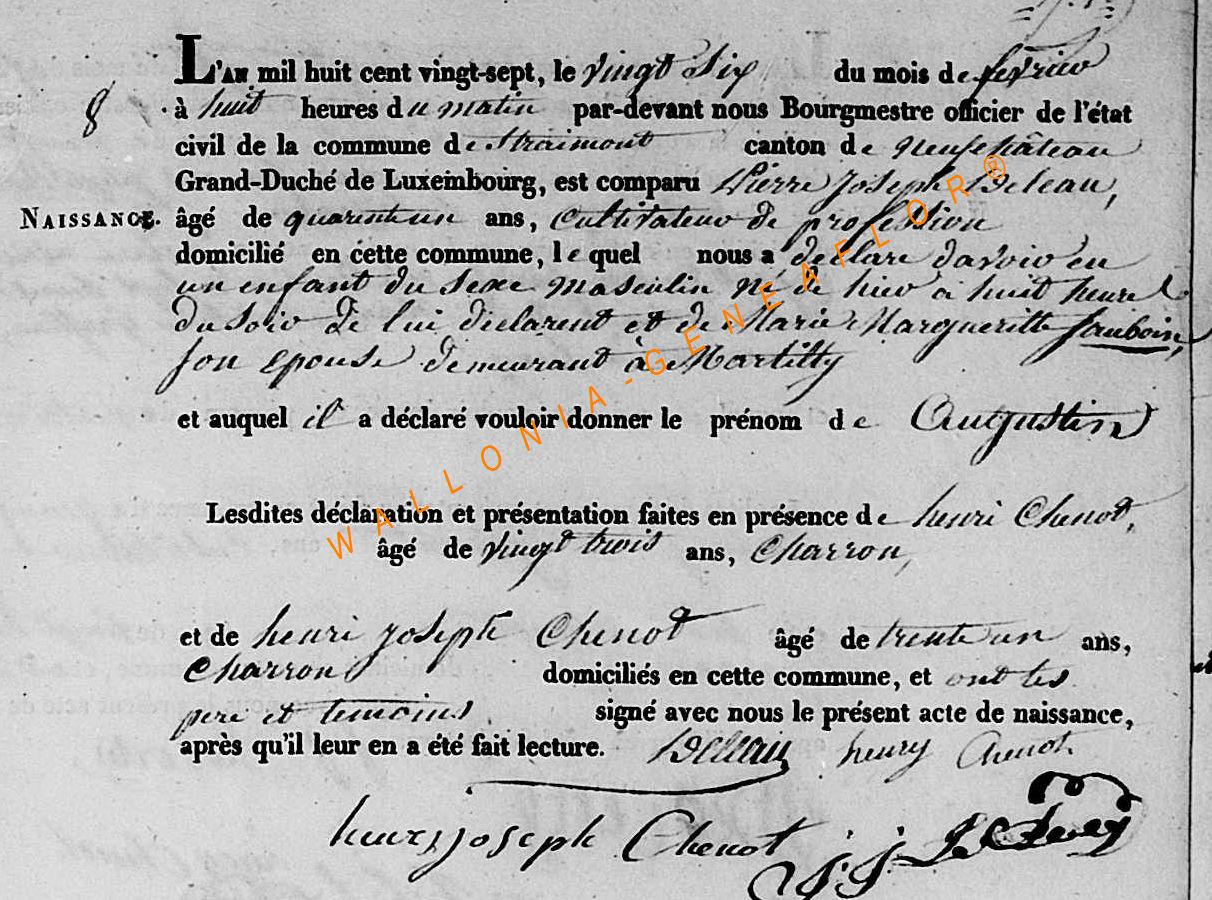 L'AN mil huit cent vingt-sept, le vingt Six du mois de fevrier
8 à huit heures du matin par-devant nous Bourgmestre officier de l'état
civil de la commune de Straimont canton de Neufchâteau
Grand-Duché de Luxembourg, est comparu Pierre Joseph Deleau,
NAISSANCE. âgé de quarent un ans, Cultivateur de profession
domicilié en cette commune, lequel nous a déclaré davoir eu
un enfant du sexe masculin né de hier à huit heures
du soir de lui déclarent et de Marie Margueritte Jauboin,
son epouse demeurant à Martilly
et auquel il a déclaré vouloir donner le prénom de Augustin
Lesdites déclaration et présentation faites en présence de henri Chenot,
âgé de vingt trois ans, Charron,
et de henri joseph Chenot âgé de trente un ans,
Charron domiciliés en cette commune, et ont les
pere et temoins signé avec nous le présent acte de naissance,
après qu'il leur en a été fait lecture. Deleau henry Chenot
henri joseph Chenot J. J.
WALLONIA-GENEAFLOR®